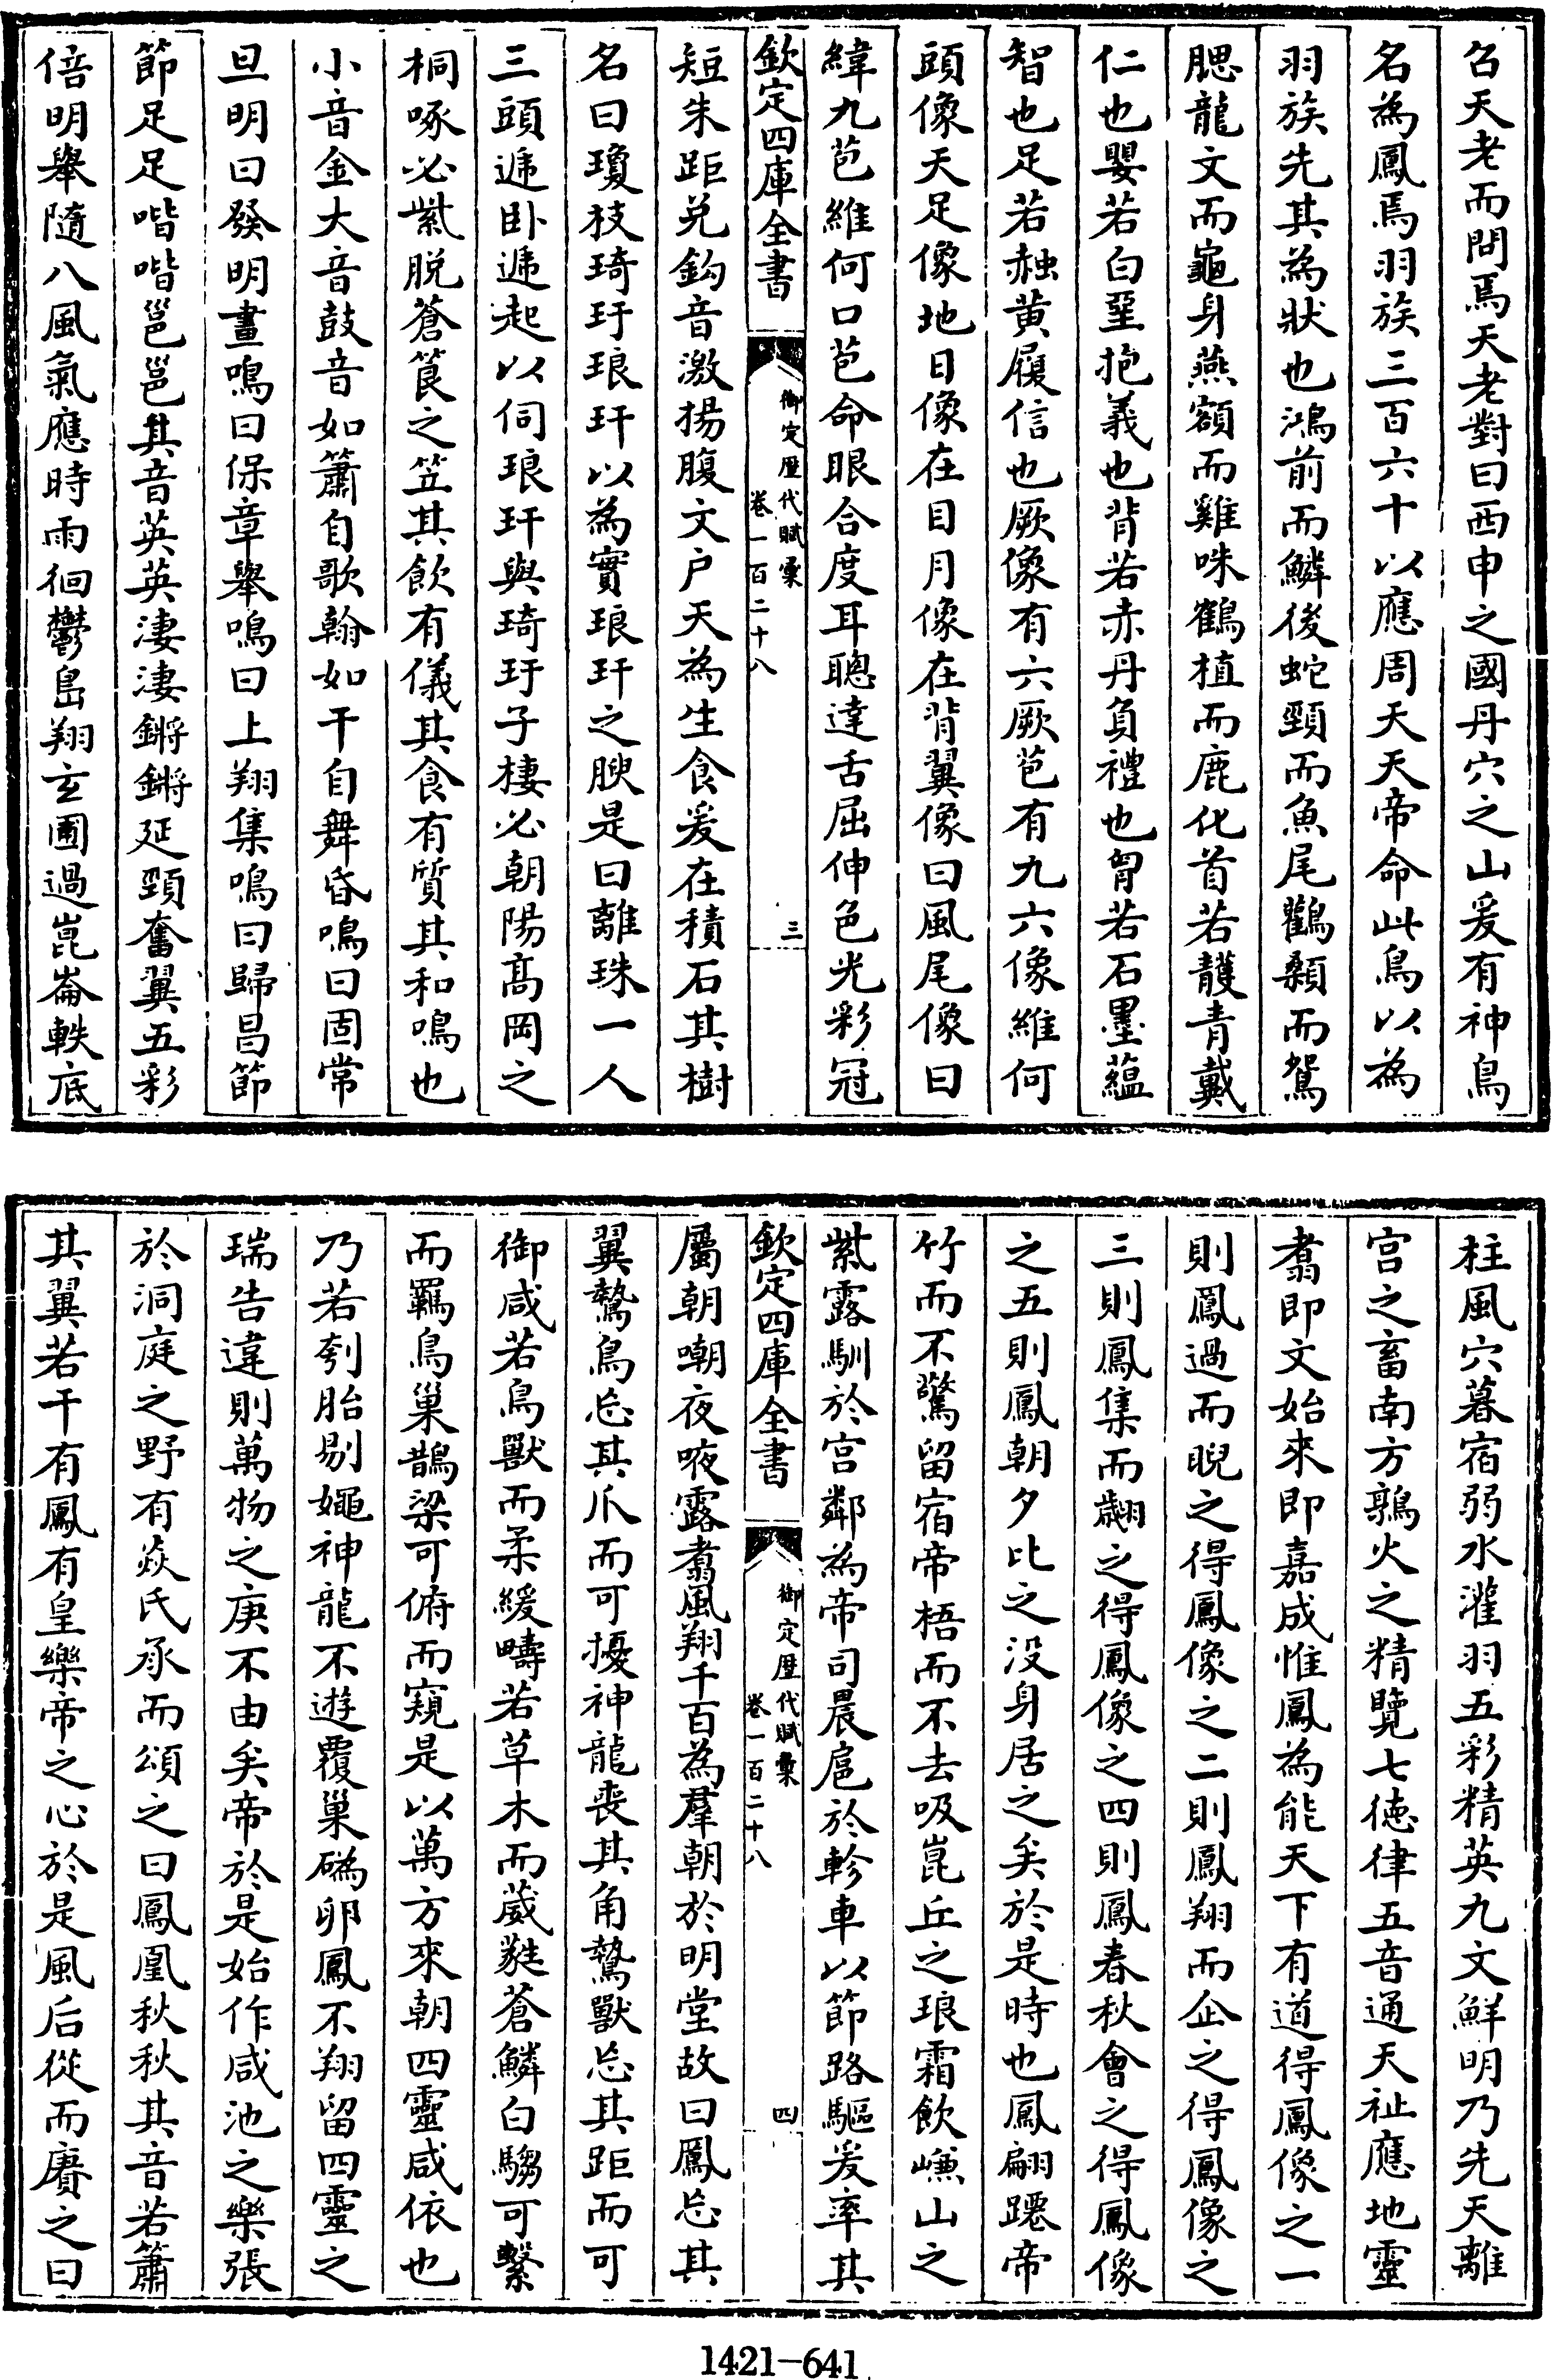 召天老而問焉天老對曰西申之國丹穴之山爰有神鳥
名為鳳焉羽族三百六十以應周天天帝命此鳥以為
羽族先其為狀也鴻前而鱗後蛇頸而魚尾鸛顙而鴛
腮龍文而龜身燕頷而雞咮鶴植而鹿化首若頀青戴
仁也嬰若白堊抱義也背若赤丹負禮也胷若石墨蘊
智也足若赩黄履信也厥像有六厥苞有九六像維何
頭像天足像地目像在日月像在背翼像曰風尾像曰
緯九苞維何口苞命眼合度耳聰達舌屈伸色光彩冠
欽定四庫全書
御定歷代賦彙
卷一百二十八
三
短朱距兊鈎音激揚腹文户天為生食爰在積石其樹
名曰瓊枝琦玗琅玕以為實琅玕之腴是曰離珠一人
三頭遞卧遞起以伺琅玕與琦玗子棲必朝陽髙岡之
桐啄必紫脱蒼筤之笠其飲有儀其食有質其和鳴也
小音金大音鼓音如簫自歌翰如干自舞昏鳴曰固常
旦明曰發明晝鳴曰保章舉鳴曰上翔集鳴曰歸昌節
節足足喈喈邕邕其音英英淒淒鏘鏘延頸奮翼五彩
倍明舉隨八風氣應時雨徊鬱島翔玄圃過崑崙軼底
柱風穴暮宿弱水灌羽五彩精英九文鮮明乃先天離
宫之畜南方鶉火之精覽七德律五音通天祉應地靈
翥即文始來即嘉成惟鳳為能天下有道得鳳像之一
則鳳過而睨之得鳳像之二則鳳翔而企之得鳳像之
三則鳳集而翽之得鳳像之四則鳳春秋會之得鳳像
之五則鳳朝夕比之没身居之矣於是時也鳳翩躚帝
竹而不驚留宿帝梧而不去吸崑丘之琅霜飲嵰山之
紫露馴於宫鄰為帝司晨扈於軫車以節路驅爰率其
欽定四庫全書
御定歷代賦彙
卷一百二十八
四
屬朝嘲夜㖡露翥風翔千百為羣朝於明堂故曰鳳忘其
翼鷙鳥忘其爪而可擾神龍喪其角鷙獸忘其距而可
御咸若鳥獸而柔緩疇若草木而葳蕤蒼鱗白騶可繫
而羈鳥巢鵲梁可俯而窺是以萬方來朝四靈咸依也
乃若刳胎剔䵴神龍不遊覆巢碢卵鳳不翔留四靈之
瑞告違則萬物之庚不由矣帝於是始作咸池之樂張
於洞庭之野有焱氏承而頌之曰鳳凰秋秋其音若簫
其翼若干有鳳有皇樂帝之心於是風后從而賡之曰
1421-641